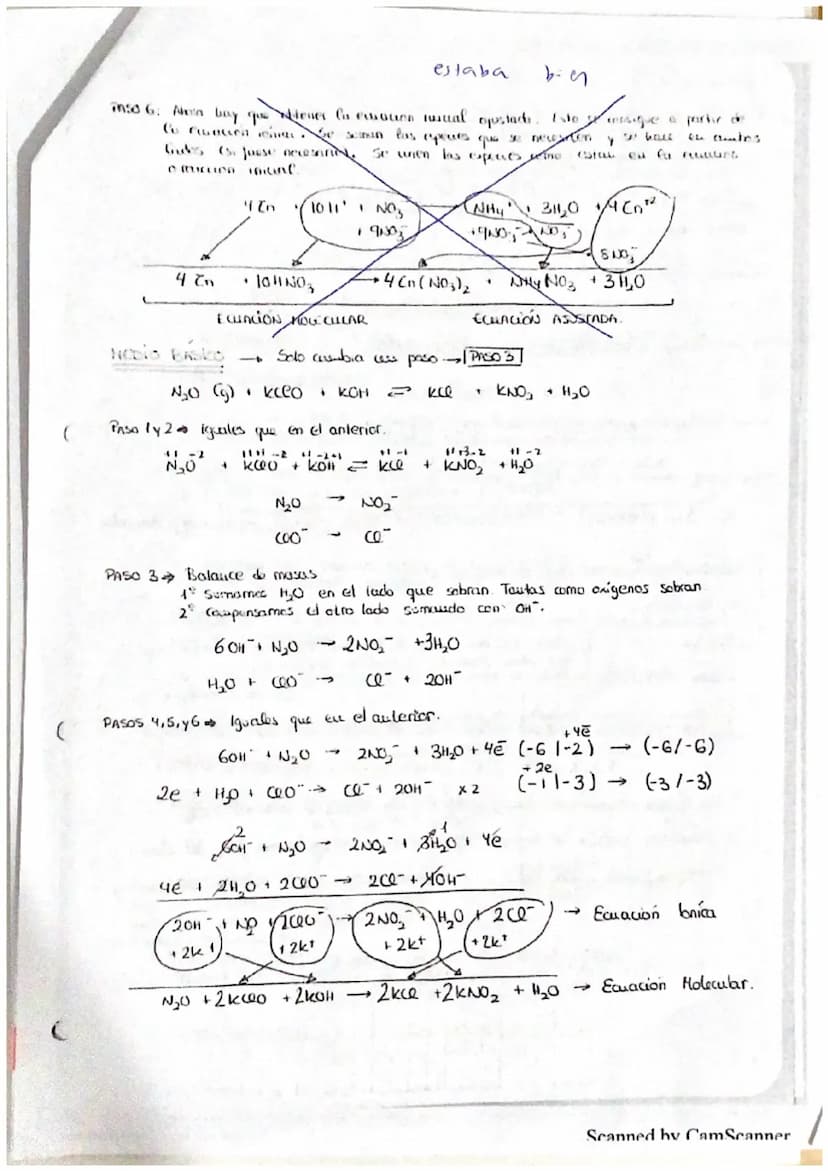 estaba bien
Paso 6: Ahora hay que obtener la ecuación inicial ajustada. Esto se consigue a partir de
la ecuación iónica. Se suman las especies que se necesiten y se hace en ambos
lados (si fuese necesario). Se unen las especies como estan en la ecuación
o reacción inicial.
4 Zn + 10H⁺ + NO₃⁻ → NH₄⁺ + 3H₂O + 4Zn⁺²
+ 9NO₃⁻ +9NO₃⁻ → NO₃⁻
8NO₃⁻
4 Zn + 10HNO₃ → 4Zn(NO₃)₂ + NH₄NO₃ + 3H₂O
ECUACIÓN MOLECULAR ECUACIÓN AJUSTADA.
MEDIO BÁSICO → Solo cambia un paso → PASO 3
N₂O (g) + KClO + KOH ⇌ KCl + KNO₂ + H₂O
Paso 1 y 2 ⇒ iguales que en el anterior.
+1 -2 +1+1 -2 +1 -2+1 +1 -1 +1+3-2 +1 -2
N₂O + KClO + KOH ⇌ KCl + KNO₂ + H₂O
N₂O → NO₂⁻
ClO⁻ → Cl⁻
PASO 3 ⇒ Balance de masas
1º Sumamos H₂O en el lado que sobran. Tantas como oxígenos sobran
2º Compensamos el otro lado sumando con OH⁻.
6OH⁻ + N₂O → 2NO₂⁻ + 3H₂O
H₂O + ClO⁻ → Cl⁻ + 2OH⁻
PASOS 4, 5, y 6 ⇒ Iguales que en el anterior.
+4e̅
6OH⁻ + N₂O → 2NO₂⁻ + 3H₂O + 4e̅ (-6 | -2) → (-6/-6)
+2e
2e + H₂O + ClO⁻ → Cl⁻ + 2OH⁻ x 2 (-1 | -3) → (-3/-3)
2 1
6OH⁻ + N₂O → 2NO₂⁻ + 3H₂O + 4e̅
4e̅ + 2H₂O + 2ClO⁻ → 2Cl⁻ + 4OH⁻
2OH⁻ + N₂O + 2ClO⁻ → 2NO₂⁻ + H₂O + 2Cl⁻ → Ecuación Iónica
+ 2K⁺ + 2K⁺ + 2K⁺ + 2K⁺
N₂O + 2KClO + 2KOH → 2KCl + 2KNO₂ + H₂O → Ecuación Molecular.
Scanned by CamScanner